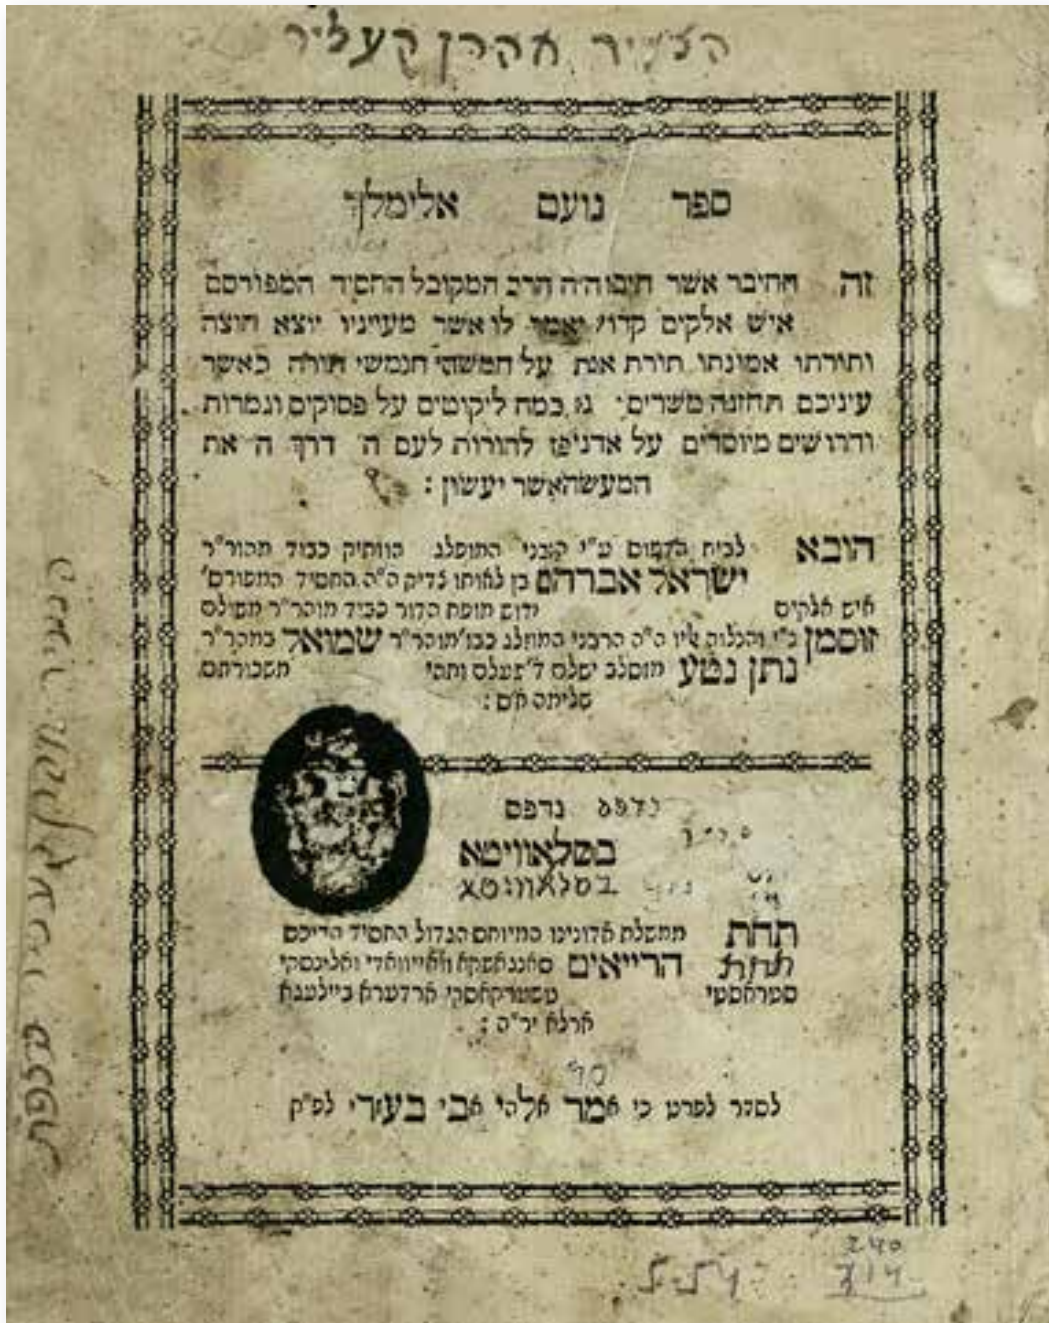 הצעיר אהרן קעליר
ספר נועם אלימלך
זה החיבר אשר חיבר ה"ה הרב המקובל החסיד המפורסם
איש אלקים קדוש יאמר לו אשר מעייניו יוצא חוצה
ותורתו אמונתו תורת אמת על חמשה חומשי תורה כאשר
עיניכם תחזנה משרים: גם כמה ליקוטים על פסוקים וגמרות
ודרושים מיוסדים על אדני פז להורות לעם ה' דרך ה' את
המעשה אשר יעשון:
הובא לבית הדפוס ע"י הרבני המופלג הוותיק כבוד מהור"ר
ישראל אברהם בן לאותו צדיק ה"ה החסיד המפורס'
איש אלקים קדוש מופת הדור כבוד מוהר"ר משולם
זוסמן נ"י והנלוה אליו ה"ה הרבני המופלג כבו' מוהר"ר שמואל במהר"ר
נתן נטע מזסלב ישלם ד' פעלם ותהי משכורתם
שלימה אמן:
נדפס נדפס
בסלאוויטא
בסלאוויטא
תחת ממשלת אדונינו המיוחס הגדול החסיד הדיכס
תחת הרייאים סאנגאשקא וואייוואדי וואלינסקי
סטראסטי טשערקאסקי ארדערא ביילעגא
ארלא יר"ה:
לסדר לפרט כי אמר אלהי אבי בעזרי לפ"ק
240
714